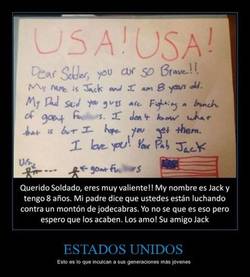 USA! USA!
Dear Solder, you our so Brave!!
My name is Jack and I am 8 years old.
My Dad said you guys are fighting a bunch
of goat Fu s. I don't know what
that is but I hope you get them.
I love you! Your Pal, Jack
goat Fu s
Querido Soldado, eres muy valiente!! My nombre es Jack y
tengo 8 años. Mi padre dice que ustedes están luchando
contra un montón de jodecabras. Yo no se que es eso pero
espero que los acaben. Los amo! Su amigo Jack
ESTADOS UNIDOS
Esto es lo que inculcan a sus generaciones más jóvenes